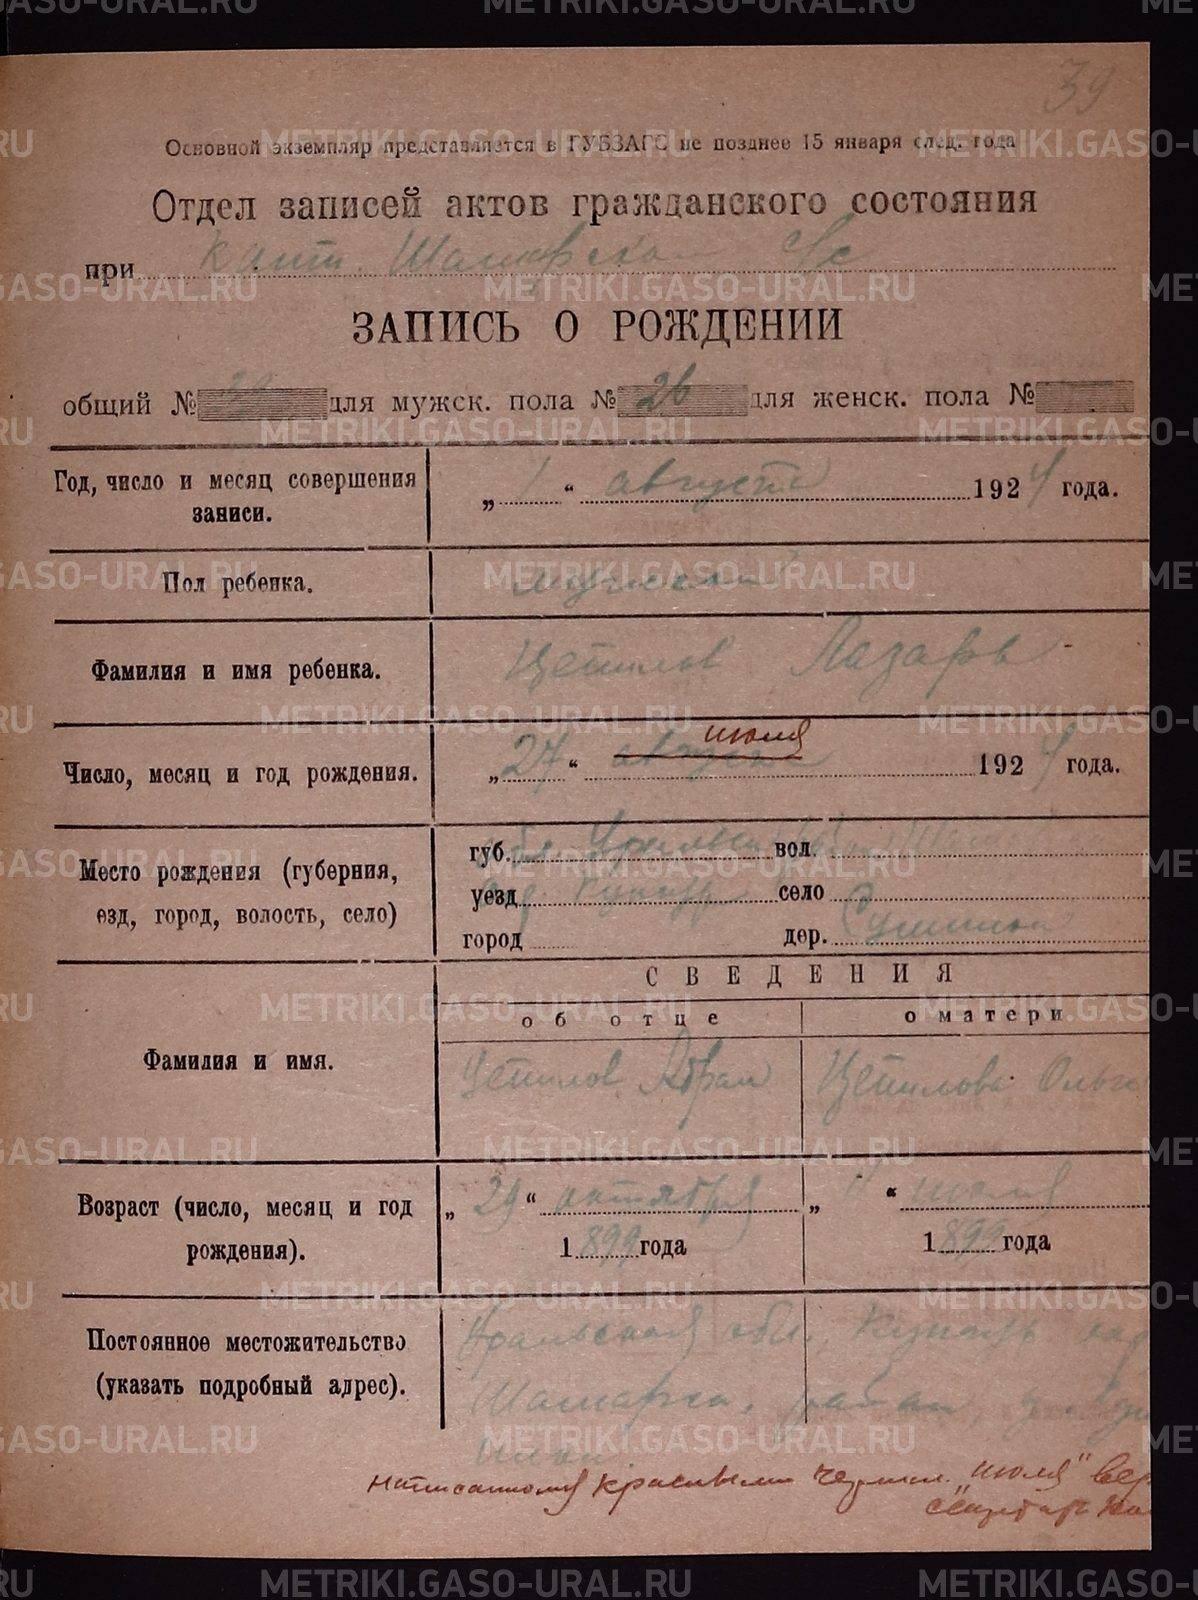 39
Основной экземпляр представляется в ГУБЗАГС не позднее 15 января след. года
Отдел записей актов гражданского состояния
при
ЗАПИСЬ О РОЖДЕНИИ
общий № для мужск. пола № 26 для женск. пола №
Год, число и месяц совершения записи. „ 1 “ августа 1924 года.
Пол ребенка. мужской
Фамилия и имя ребенка. Цепилов Лазарь
июля
Число, месяц и год рождения. „ 27 “ августа 1924 года.
Место рождения (губерния, езд, город, волость, село)
губ. обл. вол.
уезд село
город дер.
СВЕДЕНИЯ
об отце о матери
Фамилия и имя. Цепилов Абрам Цепилова Ольга
Возраст (число, месяц и год рождения). „ 29 “ октября 1899 года „ “ июля 1899 года
Постоянное местожительство (указать подробный адрес). Уральская обл.
написанному красными чернил. „июля“ вер
секретарь
METRIKI.GASO-URAL.RU